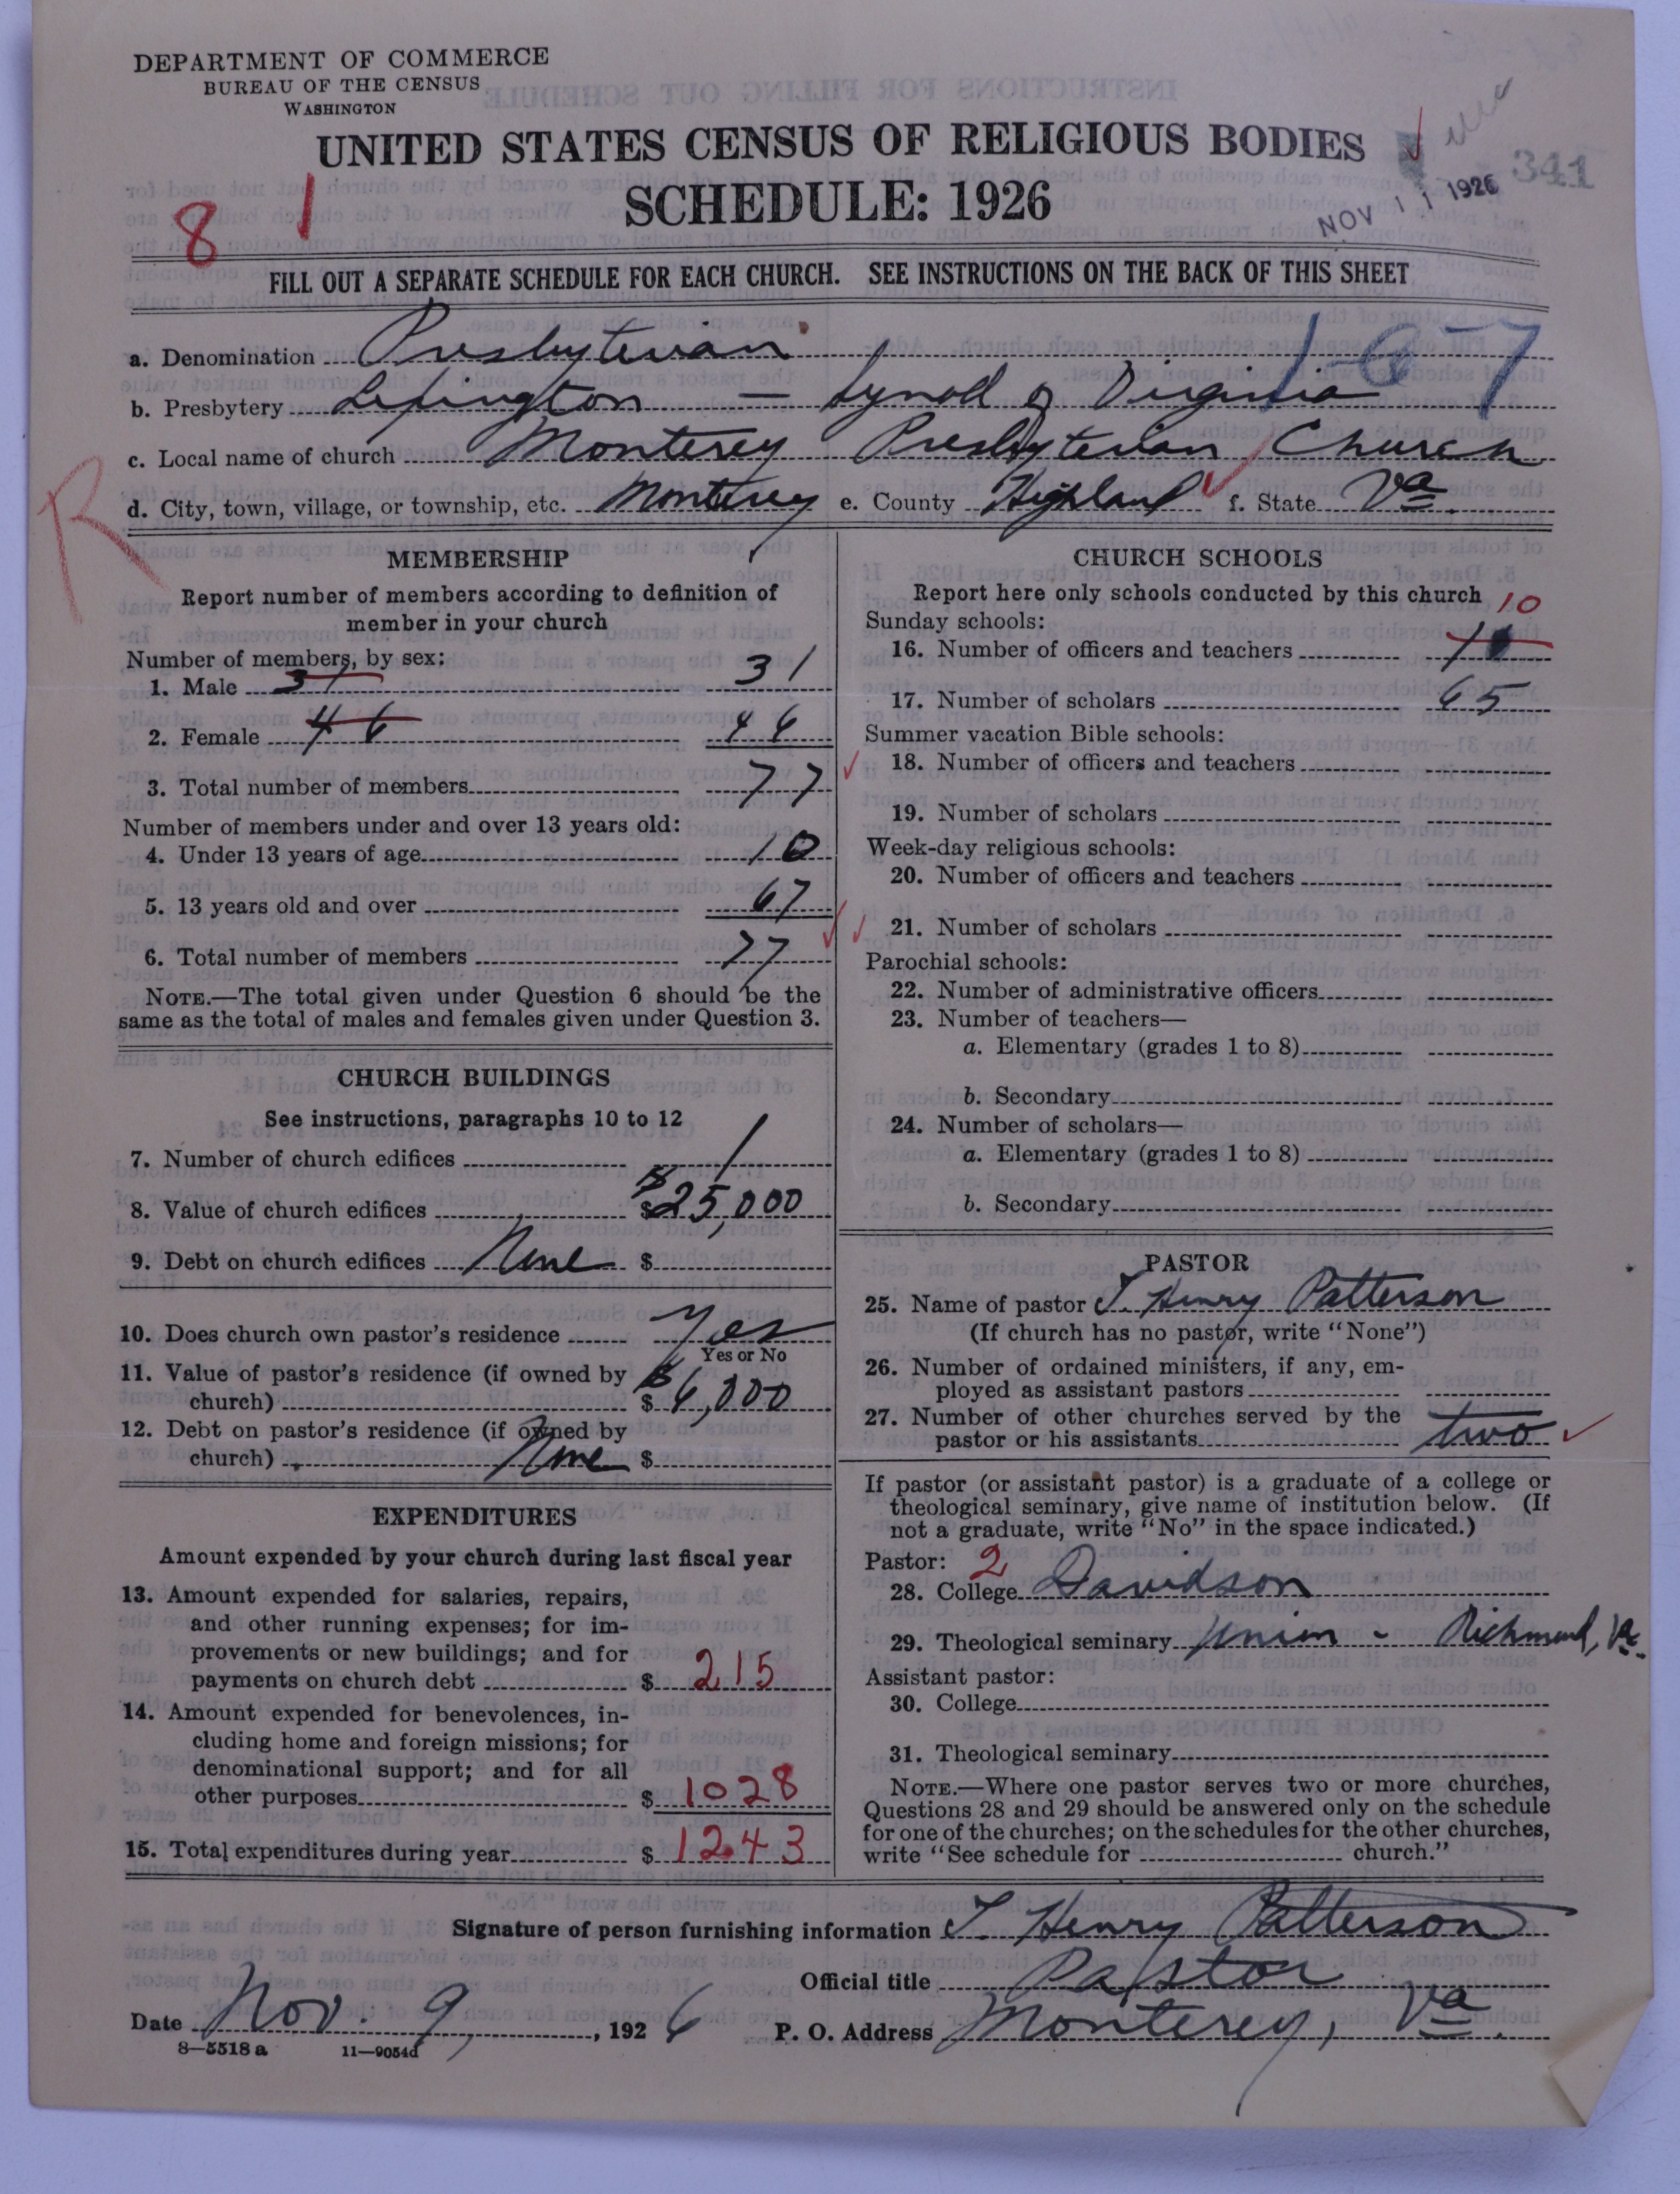 DEPARTMENT OF COMMERCE
BUREAU OF THE CENSUS
WASHINGTON
UNITED STATES CENSUS OF RELIGIOUS BODIES
SCHEDULE: 1926
8 1
NOV 11 1926
341
FILL OUT A SEPARATE SCHEDULE FOR EACH CHURCH. SEE INSTRUCTIONS ON THE BACK OF THIS SHEET
a. Denomination Presbyterian
1-6-7
b. Presbytery Lexington — Synod of Virginia
c. Local name of church Monterey Presbyterian Church
R
d. City, town, village, or township, etc. Monterey e. County Highland f. State Va.
MEMBERSHIP
Report number of members according to definition of
member in your church
Number of members, by sex:
1. Male 31 31
2. Female 46 46
3. Total number of members 77
Number of members under and over 13 years old:
4. Under 13 years of age 10
5. 13 years old and over 67
6. Total number of members 77
NOTE.—The total given under Question 6 should be the
same as the total of males and females given under Question 3.
CHURCH BUILDINGS
See instructions, paragraphs 10 to 12
7. Number of church edifices 1
8. Value of church edifices $ $25,000
9. Debt on church edifices None $
10. Does church own pastor's residence Yes
Yes or No
11. Value of pastor's residence (if owned by
church) $ $6,000
12. Debt on pastor's residence (if owned by
church) None $
EXPENDITURES
Amount expended by your church during last fiscal year
13. Amount expended for salaries, repairs,
and other running expenses; for im-
provements or new buildings; and for
payments on church debt $ 215
14. Amount expended for benevolences, in-
cluding home and foreign missions; for
denominational support; and for all
other purposes $ 1028
15. Total expenditures during year $ 1243
CHURCH SCHOOLS
Report here only schools conducted by this church
Sunday schools:
10
16. Number of officers and teachers
17. Number of scholars 65
Summer vacation Bible schools:
18. Number of officers and teachers
19. Number of scholars
Week-day religious schools:
20. Number of officers and teachers
21. Number of scholars
Parochial schools:
22. Number of administrative officers
23. Number of teachers—
a. Elementary (grades 1 to 8)
b. Secondary
24. Number of scholars—
a. Elementary (grades 1 to 8)
b. Secondary
PASTOR
25. Name of pastor T. Henry Patterson
(If church has no pastor, write "None")
26. Number of ordained ministers, if any, em-
ployed as assistant pastors
27. Number of other churches served by the
pastor or his assistants two
If pastor (or assistant pastor) is a graduate of a college or
theological seminary, give name of institution below. (If
not a graduate, write "No" in the space indicated.)
Pastor: 2
28. College Davidson
29. Theological seminary Union - Richmond, Va.
Assistant pastor:
30. College
31. Theological seminary
NOTE.—Where one pastor serves two or more churches,
Questions 28 and 29 should be answered only on the schedule
for one of the churches; on the schedules for the other churches,
write "See schedule for church."
Signature of person furnishing information T. Henry Patterson
Official title Pastor
Date Nov. 9, 1926 P. O. Address Monterey, Va.
8—5518 a 11—9054d